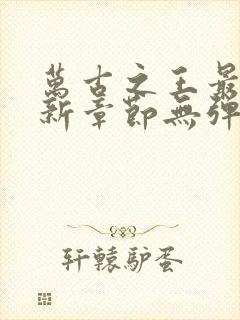 萬古之王最
新章節無彈
轩辕驴蛋